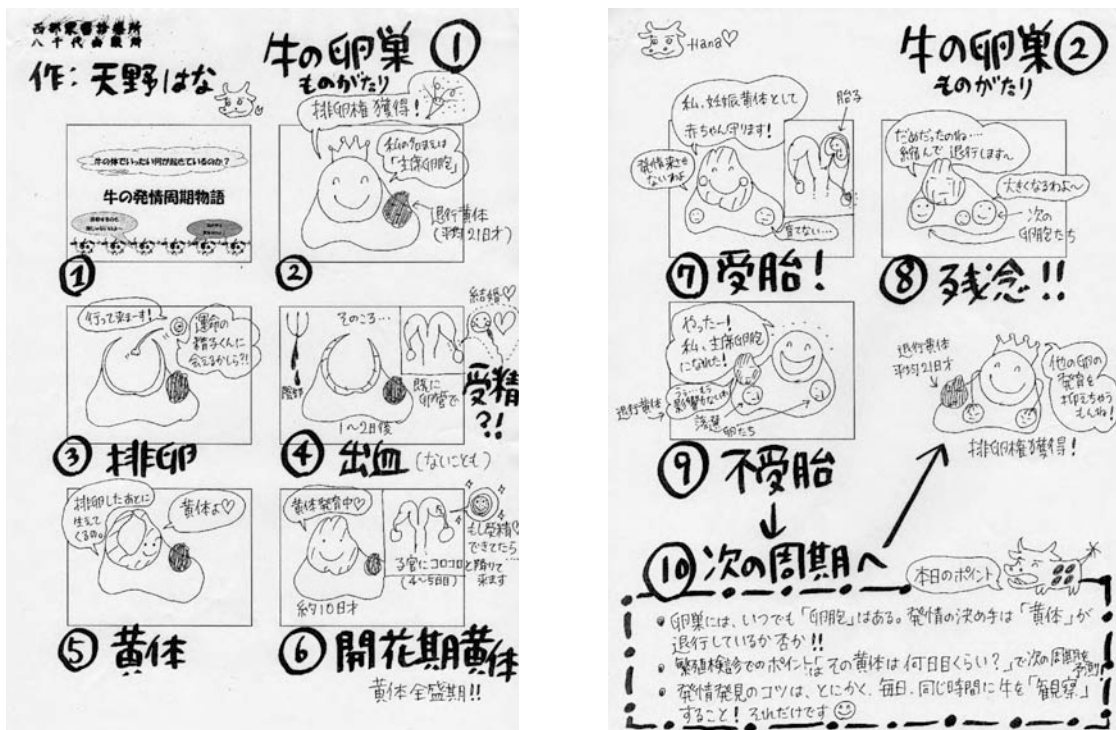 西部家畜診療所
八千代出張所
作：天野はな
牛の卵巣 ①
ものがたり
牛の体でいったい何が起きているのか？
牛の発情周期物語
①
排卵権獲得！
私の名まえは
「主席卵胞」
退行黄体
(平均21日才)
②
行って来まーす！
運命の
精子くんに
会えるかしら?!
③ 排卵
そのころ…
陰部
1〜2日後
既に
卵管で
結婚♡
受精
?!
④ 出血 (ないことも)
排卵したあとに
生えて
くるの。
黄体よ♡
⑤ 黄体
黄体発育中♡
約10日才
子宮にコロコロと降りて
来ます
(4〜5日目)
もし受精♡
できてたら…
⑥ 開花期黄体
黄体全盛期!!
Hana♡
牛の卵巣②
ものがたり
私、妊娠黄体として
赤ちゃん守ります！
発情来させ
ないわよ
胎子
育てない…
⑦ 受胎！
だめだったのね…
縮んで退行します〜
大きくなるわよ〜
次の
卵胞たち
⑧ 残念!!
やったー！
私、主席卵胞
になれた！
退行黄体
う…もう
影響力ないわ
落選
卵たち
⑨ 不受胎
退行黄体
平均21日才
他の卵の
発育を
抑えちゃう
もんね！
排卵権獲得！
⑩ 次の周期へ
本日のポイント
• 卵巣には、いつでも「卵胞」はある。発情の決め手は「黄体」が
退行しているか否か!!
• 繁殖検診でのポイントは「その黄体は何日目くらい？」で次の周期を
予測！
• 発情発見のコツは、とにかく、毎日、同じ時間に牛を「観察」
すること！それだけです